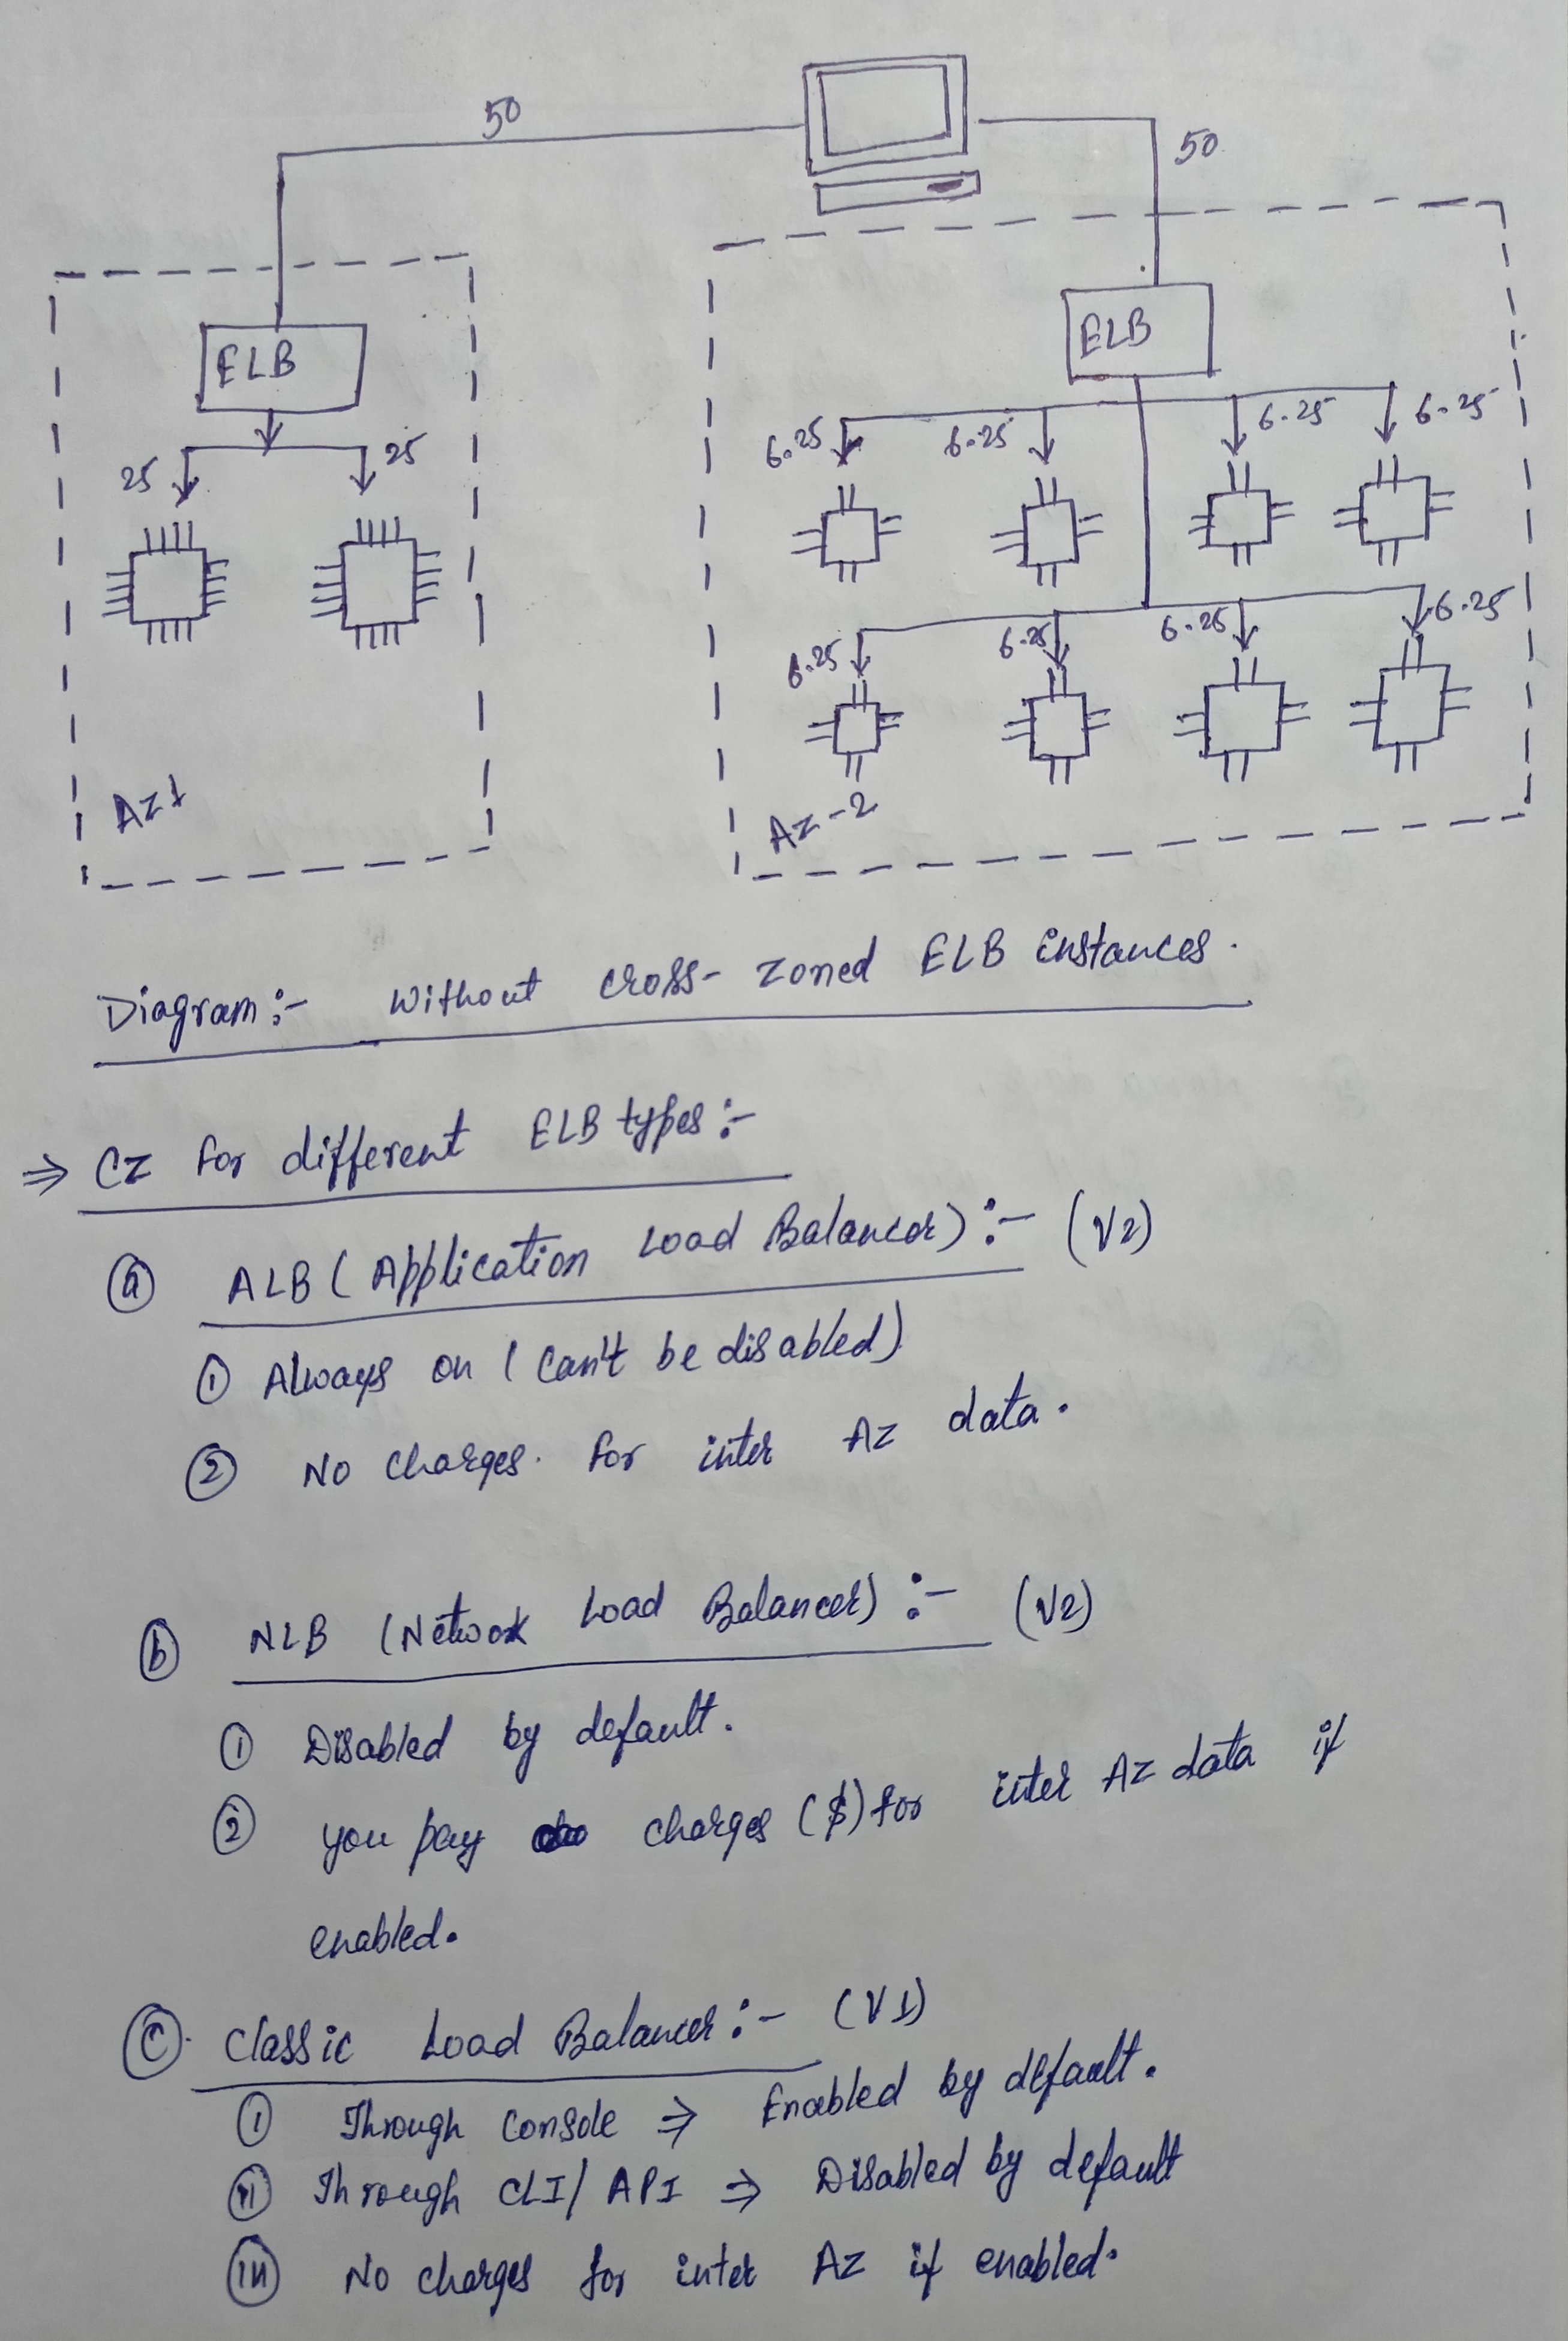 50
50
ELB
ELB
25
25
6.25
6.25
6.25
6.25
6.25
6.25
6.25
6.25
AZ1
AZ-2
Diagram:- Without cross-zoned ELB instances.
⇒ CZ for different ELB types:-
(a) ALB (Application Load Balancer):- (V2)
(1) Always on (can't be disabled)
(2) No charges. for inter AZ data.
(b) NLB (Network Load Balancer):- (V2)
(1) Disabled by default.
(2) you pay charges ($) for inter AZ data if
enabled.
(C). Classic Load Balancer:- (V1)
(i) Through Console ⇒ Enabled by default.
(ii) Through CLI/API ⇒ Disabled by default
(iii) No charges for inter AZ if enabled.